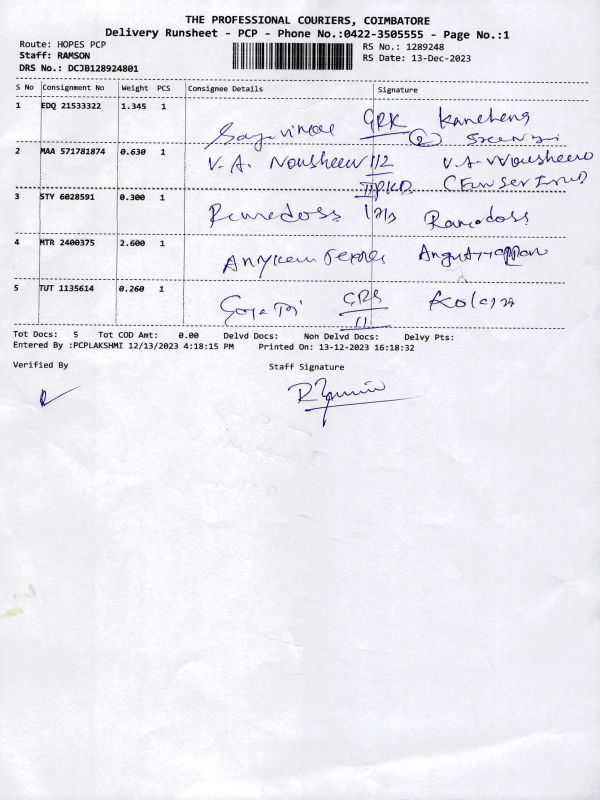 THE PROFESSIONAL COURIERS, COIMBATORE
Delivery Runsheet - PCP - Phone No.:0422-3505555 - Page No.:1
Route: HOPES PCP
Staff: RAMSON
DRS No.: DCJB128924801
RS No.: 1289248
RS Date: 13-Dec-2023
S No Consignment No Weight PCS Consignee Details Signature
1 EDQ 21533322 1.345 1 GRK
2
2 MAA 571781874 0.630 1 V. A. Nousheen 1/2 V. A. Nousheen
3 STY 6028591 0.300 1 Ramedoss Ramedoss
4 MTR 2400375 2.600 1
5 TUT 1135614 0.260 1
Tot Docs: 5 Tot COD Amt: 0.00 Delvd Docs: Non Delvd Docs: Delvy Pts:
Entered By :PCPLAKSHMI 12/13/2023 4:18:15 PM Printed On: 13-12-2023 16:18:32
Verified By Staff Signature